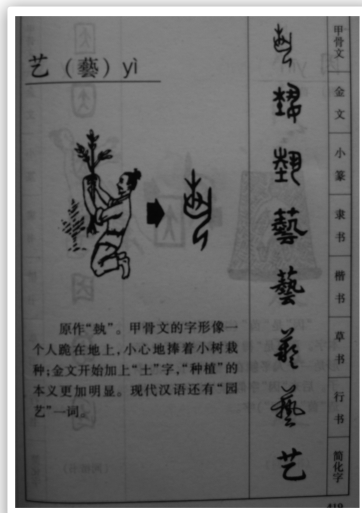 艺（藝）yì
原作“埶”。甲骨文的字形像一
个人跪在地上，小心地捧着小树栽
种；金文开始加上“土”字，“种植”的
本义更加明显。现代汉语还有“园
艺”一词。
甲骨文
金文
小篆
隶书
楷书
草书
行书
简化字
藝
藝
艺